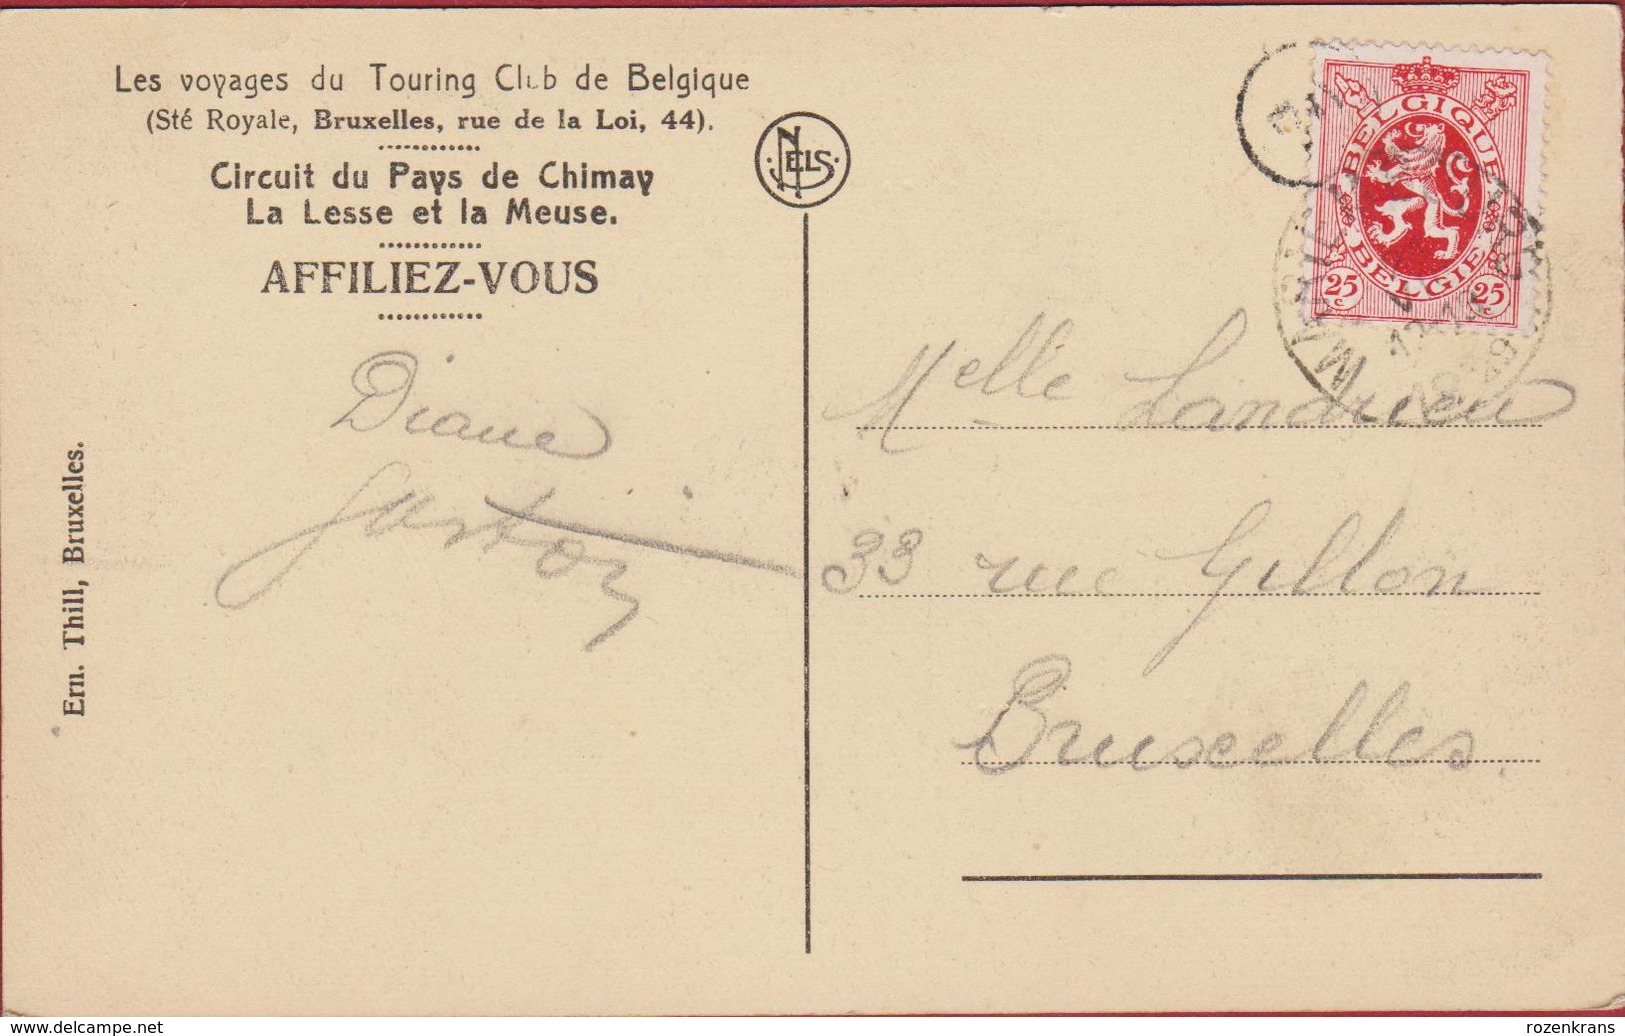 Les voyages du Touring Club de Belgique
(Sté Royale, Bruxelles, rue de la Loi, 44).
Circuit du Pays de Chimay
La Lesse et la Meuse.
AFFILIEZ-VOUS
NELS
Ern. Thill, Bruxelles.
BELGIQUE
BELGIE
25 c 25 c
12-13
Diane
Gaston
Melle Landrieu
33 rue Gillon
Bruxelles.
www.delcampe.net
rozenkrans